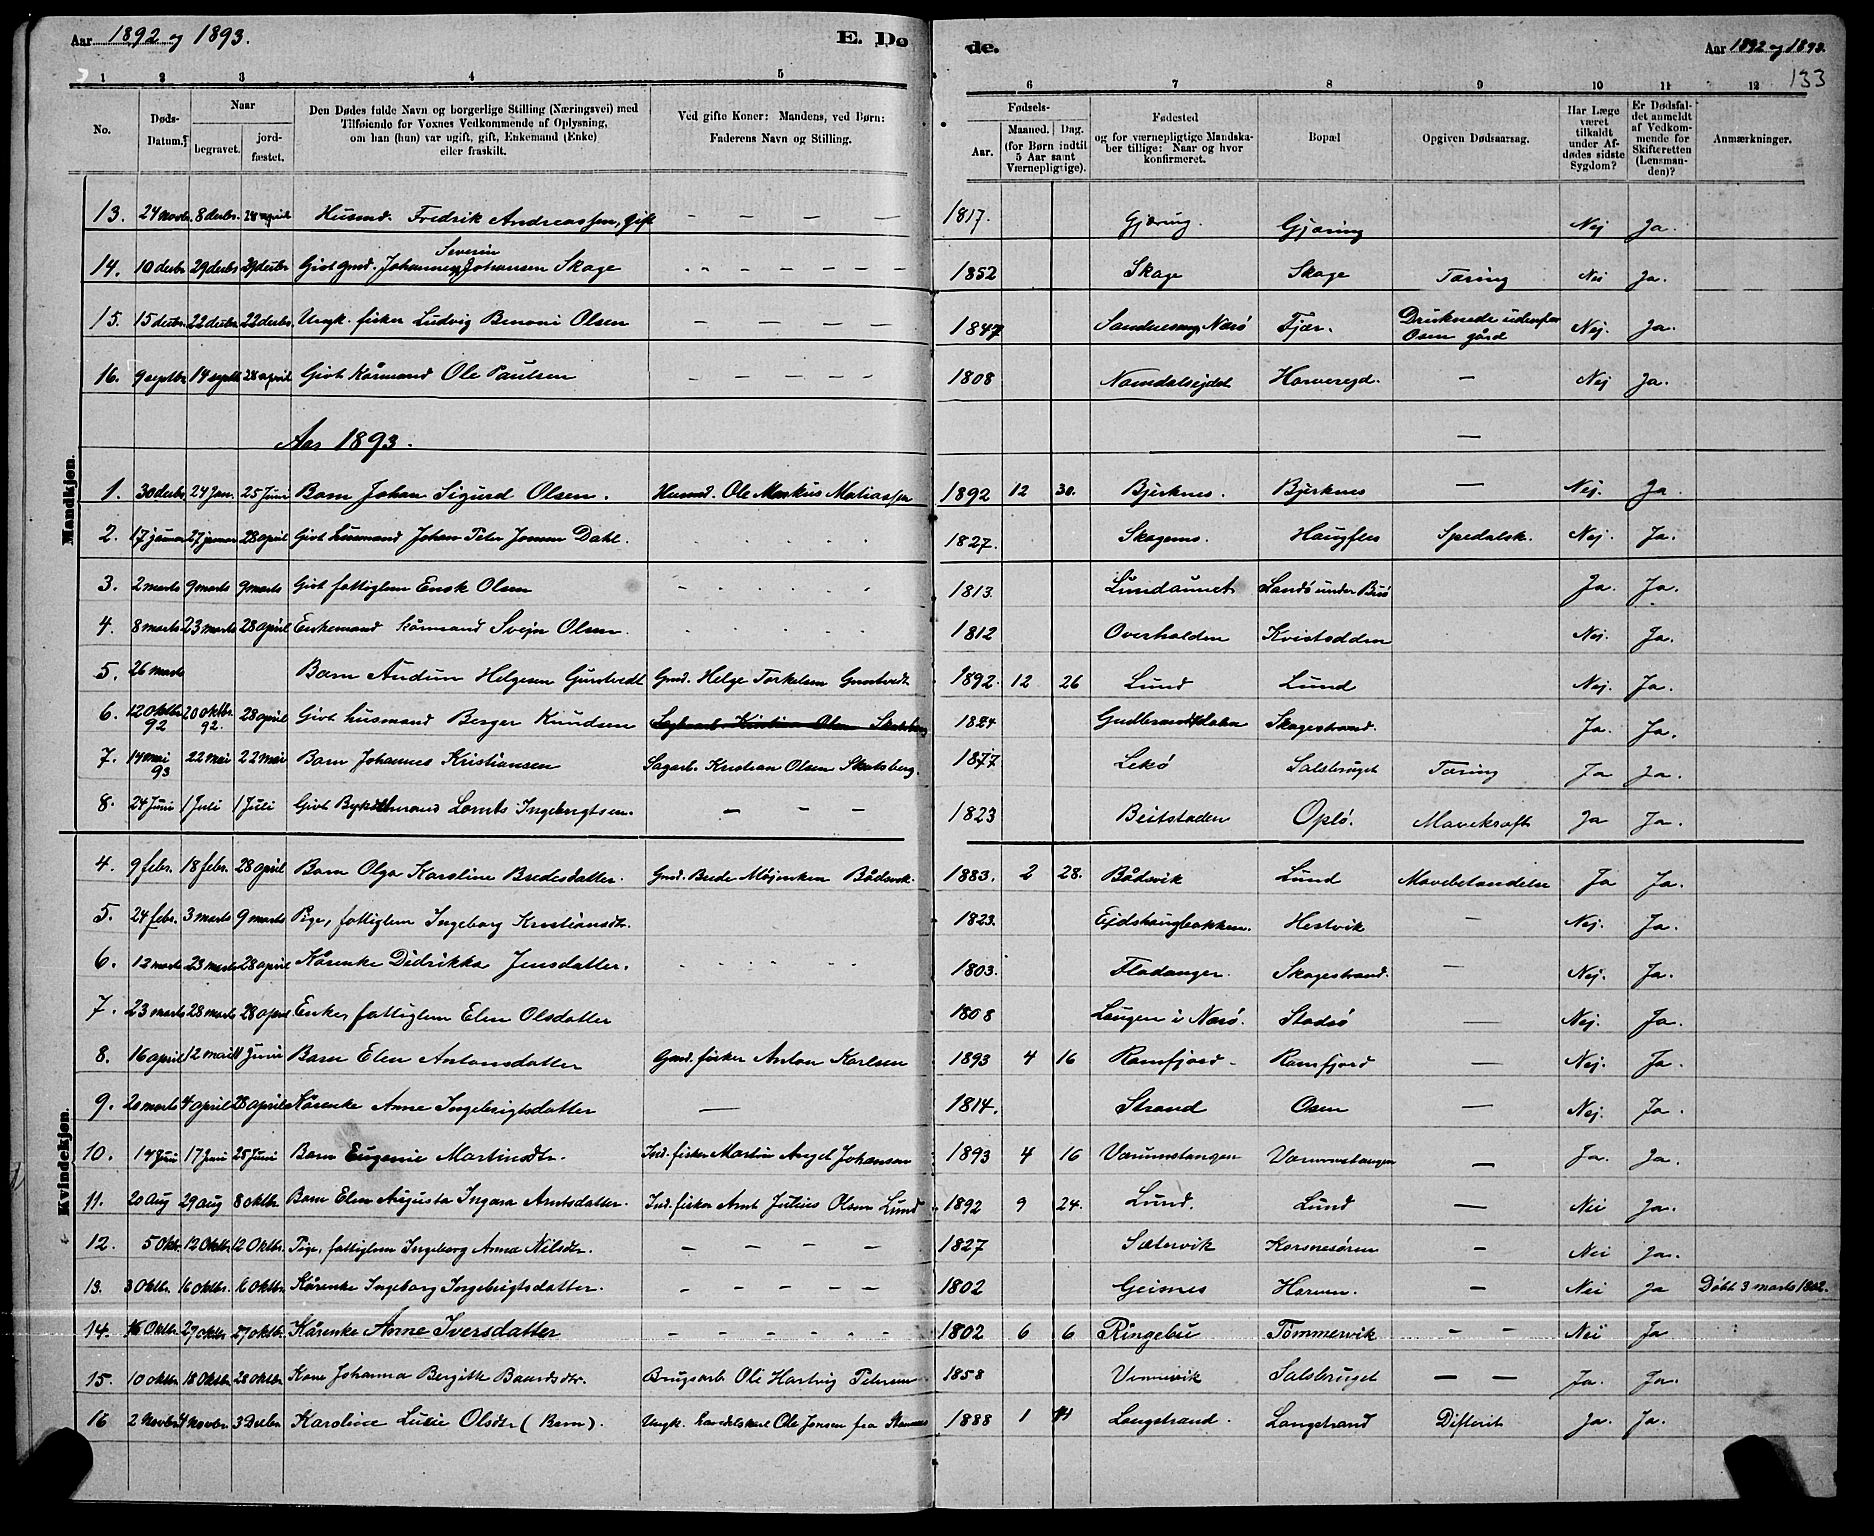 Aar 1892 og 1893.
E. Dø
de.
Aar 1892 og 1893.
133
1 2 3 4 5 6 7 8 9 10 11 12
No.
Døds-Datum.
Naar
begravet.
jordfæstet.
Den Dødes fulde Navn og borgerlige Stilling (Næringsvei) med
Tilføiende for Voxnes Vedkommende af Oplysning,
om han (hun) var ugift, gift, Enkemand (Enke)
eller fraskilt.
Ved gifte Koner: Mandens, ved Børn:
Faderens Navn og Stilling.
Fødsels-
Aar.
Maaned.
Dag.
(for Børn indtil
5 Aar samt
Værnepligtige).
Fødested
og for værnepligtige Mandska-
ber tillige: Naar og hvor
konfirmeret.
Bopæl
Opgiven Dødsaarsag.
Har Læge
været
tilkaldt
under Af-
dødes sidste
Sygdom?
Er Dødsfal-
det anmeldt
af Vedkom-
mende for
Skifteretten
(Lensman-
den)?
Anmærkninger.
Mandkjøn.
13. 24 novbr. 8 decbr. 28 april Husmd. Fredrik Andreassen, gift — — — — 1817. Gjæring. Gjæring Nej Ja.
14. 10 decbr 29 decbr 29 decbr Givt gmd. Johannes Severin Johansen Skage - - — — — — 1852 Skage Skage Tæring Nei Ja.
15. 15 decbr. 22 decbr. 22 decbr. Ungk. fisker Ludvig Benoni Olsen — — — — 1847 Nærø Fjær. Druknede udenfor Osen gård Nej. Ja.
16. 9 septbr 14 septb 28 april Givt kårmand Ole Paulsen — — — — 1808 Namdalsejdet — Nej Ja.
Aar 1893. —
1. 30 decbr. 24 Jan. 25 Juni Barn Johan Sigurd Olsen. Husmd. Ole Markus Matiassen 1892 12 30. Bjerknes. Bjerknes — Nej. Ja
2. 17 januar 27 januar 28 april Givt husmand Johan Peter Jonsen Dahl. 1827. Skagenes. Haugfles Spedalsk. Nej. Ja.
3. 2 marts 9 marts 9 marts Givt fattiglem Ensk Olsen 1813. Lundaunet Sandø under Ja. Ja.
4. 8 marts 23 marts 28 april Enkemand kårmand Svejn Olsen. 1812 Overhalden Kvistodden Nej. Ja.
5. 26 marts Barn Audun Helgesen Gurstvedt Gmd. Helge Torkelsen 1892. 12 26 Lund Lund Nej. Ja.
6. 12 oktbr 92 20 oktbr. 92. 28 april Givt husmand Berger Knudsen Sagbrarb Kristian Olsen Skatsberg 1824 Gudbrandsdalen Skagestrand. Ja. Ja.
7. 14 mai 93 22 mai 22 mai Barn Johannes Kristiansen Sagarb. Kristian Olsen Skatsberg. 1877 Lekø Salsbruget Tæring Ja Ja.
8. 24 Juni 1 Juli 1 Juli Givt Bykselmand Lornts Ingebrigtsen. — — — 1823 Beitstaden Oplø. Mavekræft Ja Ja.
Kvindekjøn.
4. 9 febr. 18 febr. 28 april Barn Olga Karoline Bredesdatter. Gmd. Brede Bådsvik. 1883. 2 28. Bådsvik Lund Mavebetændelse Ja Ja.
5. 24 febr. 3 marts 9 marts Pige, fattiglem Ingeborg Kristiansdtr. 1823. Ejdshaugbakken. Hestvik — Nej. Ja.
6. 12 marts 23 marts 28 april Kårenke Didrikka Jensdatter. 1803. Fladanger. Skagestrand. — Nej. Ja.
7. 23 marts 28 marts 28 april Enke, fattiglem Elen Olsdatter 1808 Laugen i Nærø. Stadsø — Nej. Ja.
8. 16 april 12 mai 11 Juni Barn Elen Antonsdatter Gmd. fisker Anton Karlsen 1893 4 16 Ramfjord. Ramfjord — Nej. Ja.
9. 20 marts 4 april 28 april Kårenke Anne Ingebrigtsdatter — 1814. Strand Osen — Nej. Ja.
10. 14 Juni 17 Juni 25 Juni Barn Eugenie Martinsdtr. Ind. fisker Martin Angel Johansen 1893 4 16 Værumstangen Værumstangen — Ja. Ja.
11. 20 Aug 29 aug 8 oktbr. Barn Elen Augusta Ingara Arntsdatter. Ind. fisker Arnt Julius Olsen Lund 1892 9 24. Lund. Lund — Nei Ja.
12. 5 Okt. 12 Oktbr. 12 Oktbr. Pige, fattiglem Ingeborg Anna Nilsdtr. — — — — 1827 Sætervik Korsnesøren — Nei Ja.
13. 3 Oktbr. 16 oktbr. 16 Oktbr. Kårenke Ingeborg Ingebrigtsdatter. — — — — 1802 Geisnes — Nei Ja Døbt 3 marts 1802.
14. 16 Oktbr. 27 oktbr. 27 oktbr. Kårenke Anne Iversdatter — — — — 1802 6 6 Ringebu Tømmervik — — Nei Ja
15. 10 oktbr. 18 Oktbr. 28 oktbr. Kone Johanna Bergitte Baardsdtr. Brugsarb Ole Hartvig Petersen 1858 Vennevik Salsbruget — — Ja. Ja.
16 2 novbr 4 novbr. 3 Decbr Karoline Lucie Olsdtr (Barn). Ungk. handelskarl Ole Jonsen fra 1888 1 Langstrand. Langstrand Difterit Ja. Ja.